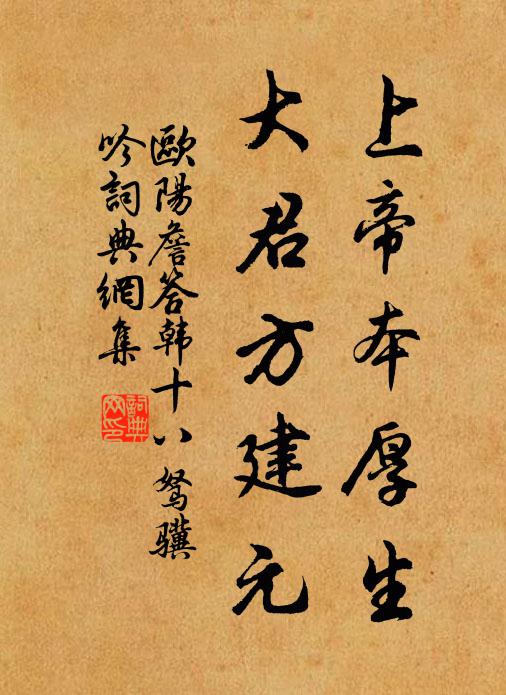 上帝本厚生
大君方建元
歐陽詹答韩十八駑驥
吟詞典網集
詞典網印